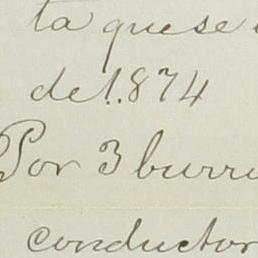 ta que se
de 1.874
Por 3 burr
conductor